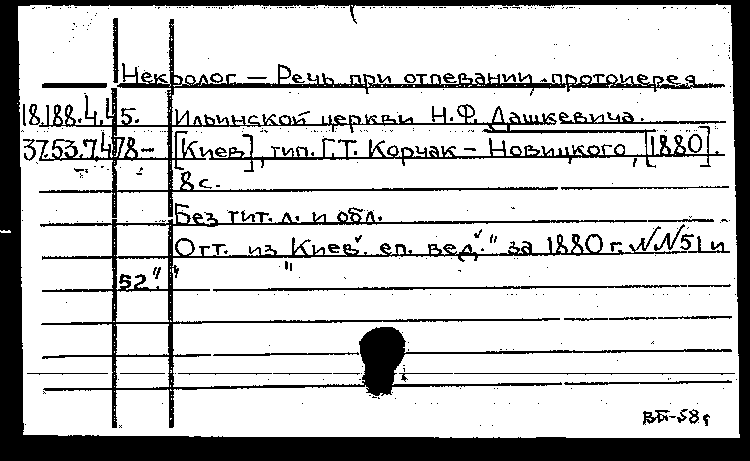 Некролог — Речь при отпевании протоиерея
18.188.4.45. Ильинской церкви Н.Ф. Дашкевича.
37.53.7.478- [Киев], тип. Г.Т. Корчак - Новицкого, [1880].
8 с.
Без тит. л. и обл.
Отт. из „Киев. еп. вед." за 1880 г. №№51 и
52".
ВБ-58г